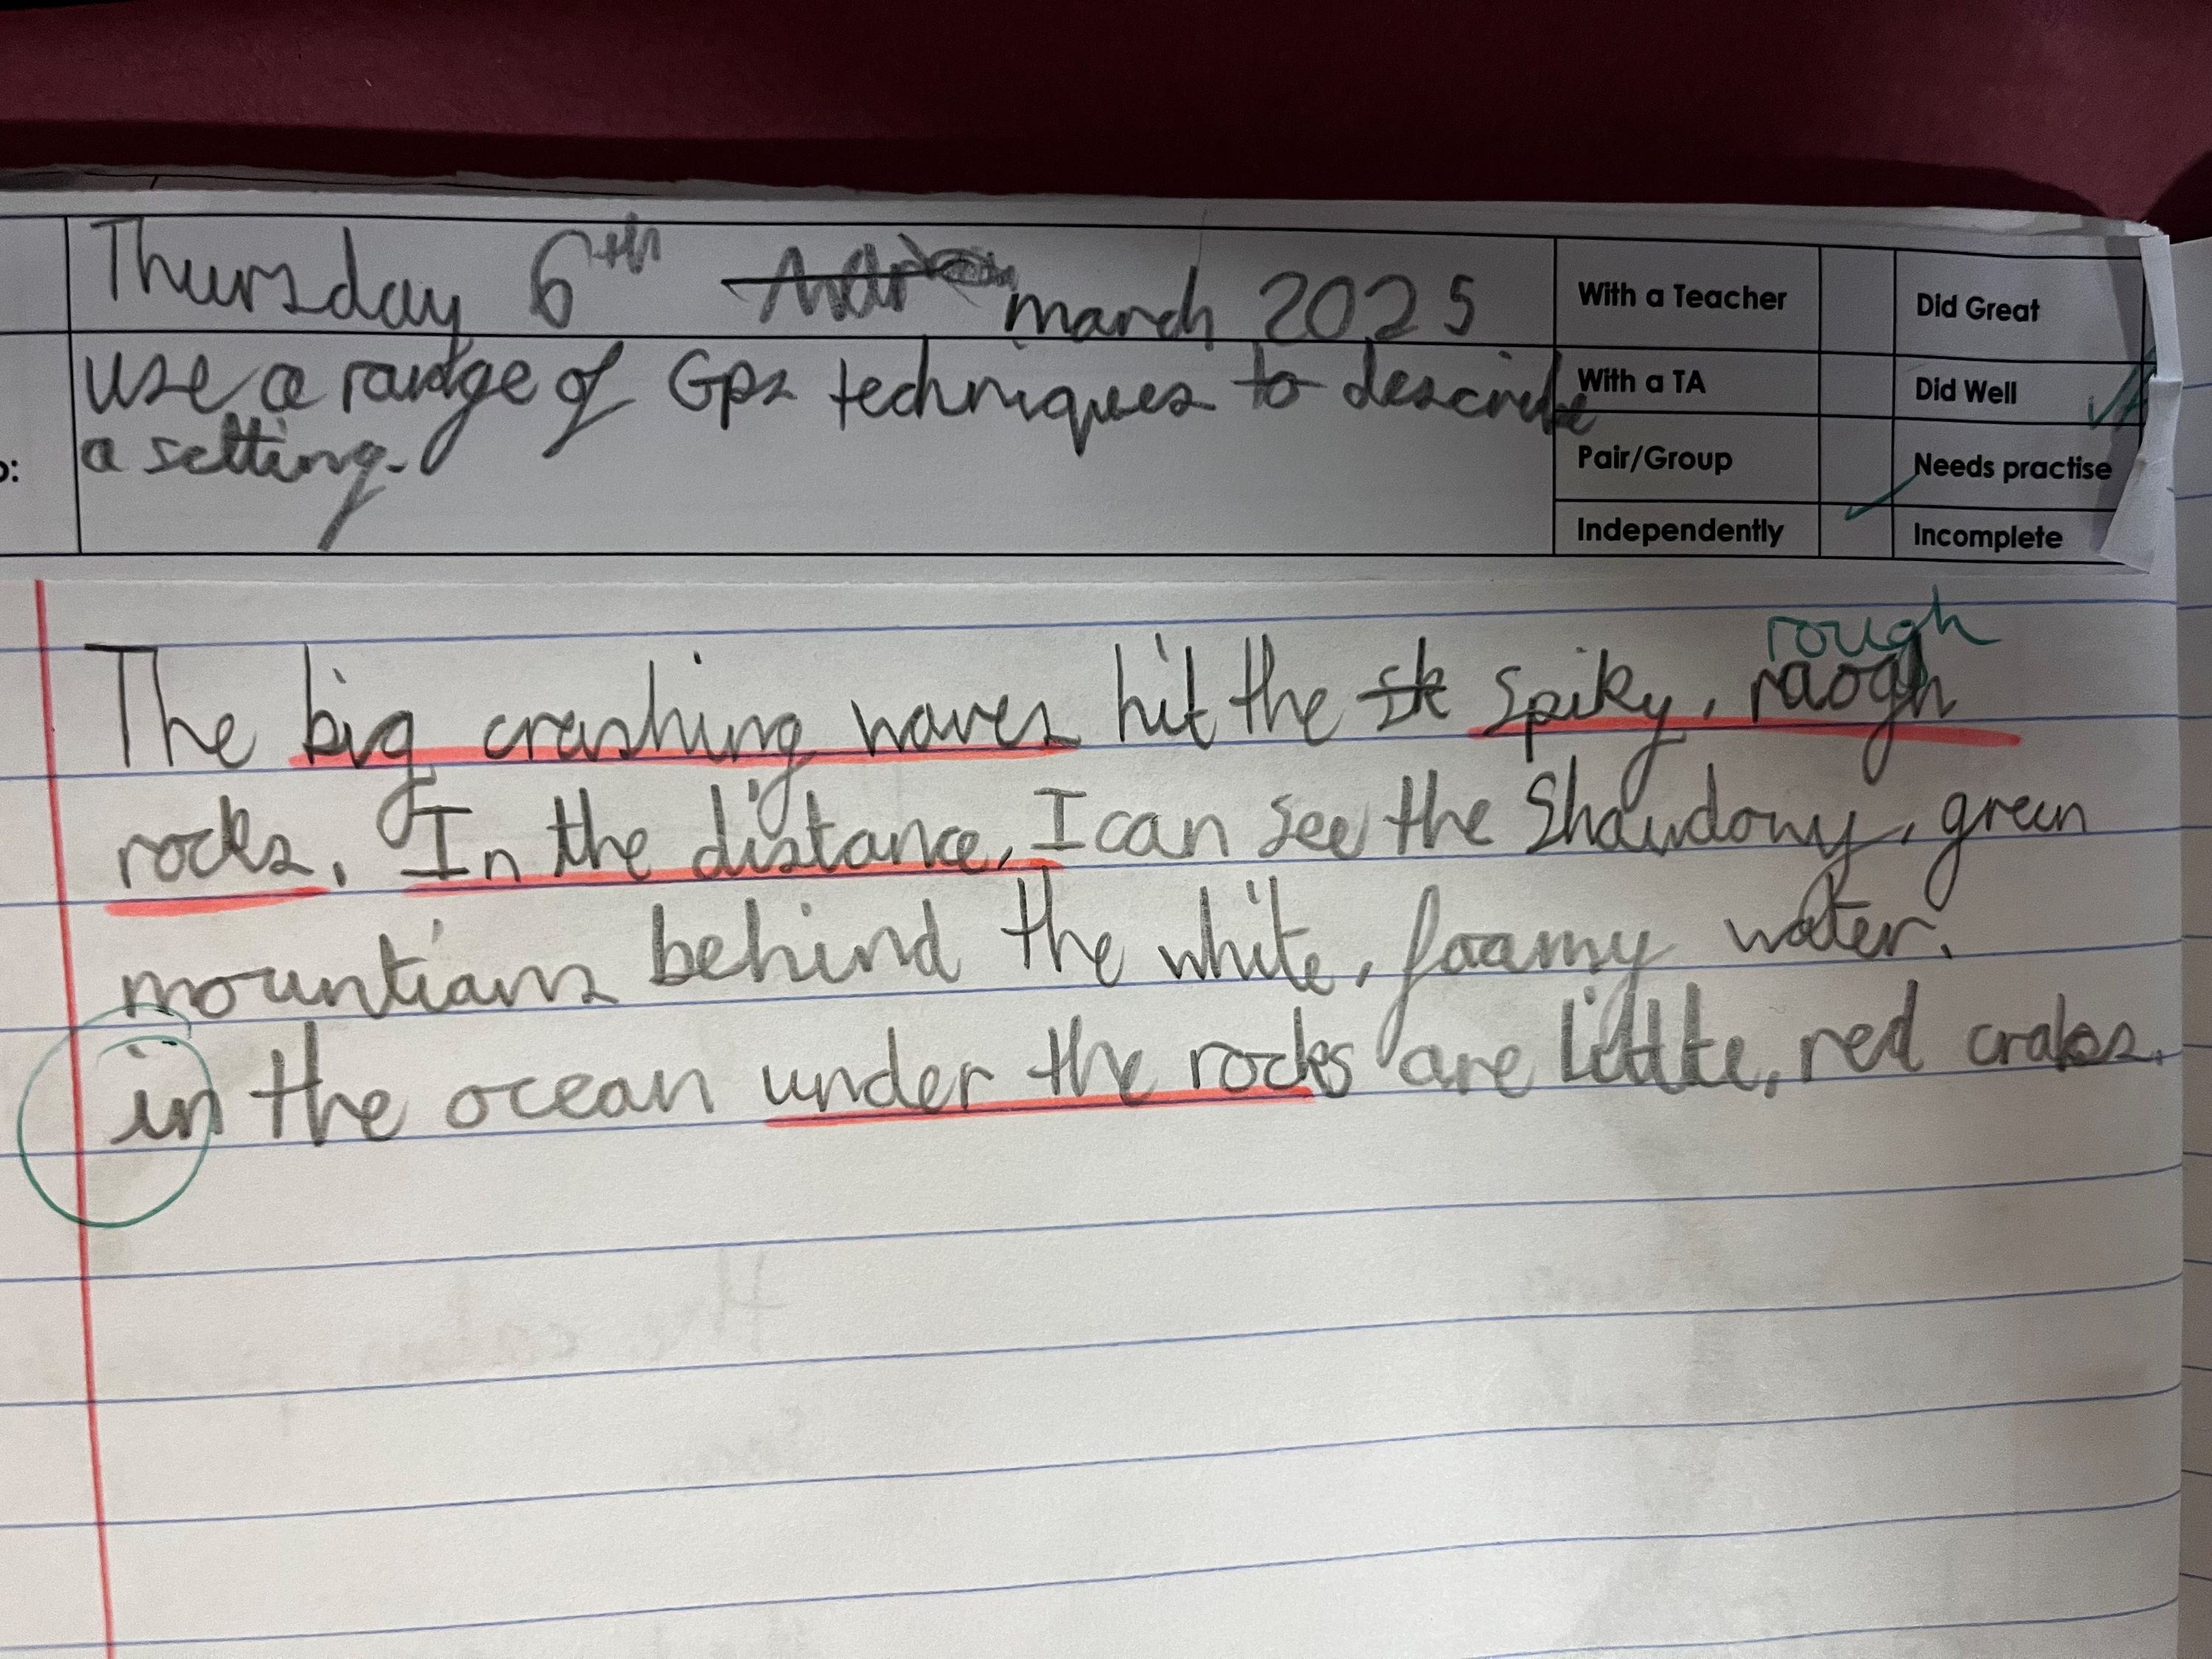 Thursday 6th march 2025
With a Teacher
Did Great
use a range of Gps techniques to describe
With a TA
Did Well
a setting.
Pair/Group
Needs practise
Independently
Incomplete
rough
The big crashing waves hit the sk spiky, raogh
rocks. In the distance, I can see the Shawdowy, green
mountians behind the white, foamy water.
in the ocean under the rocks are little, red crabs.